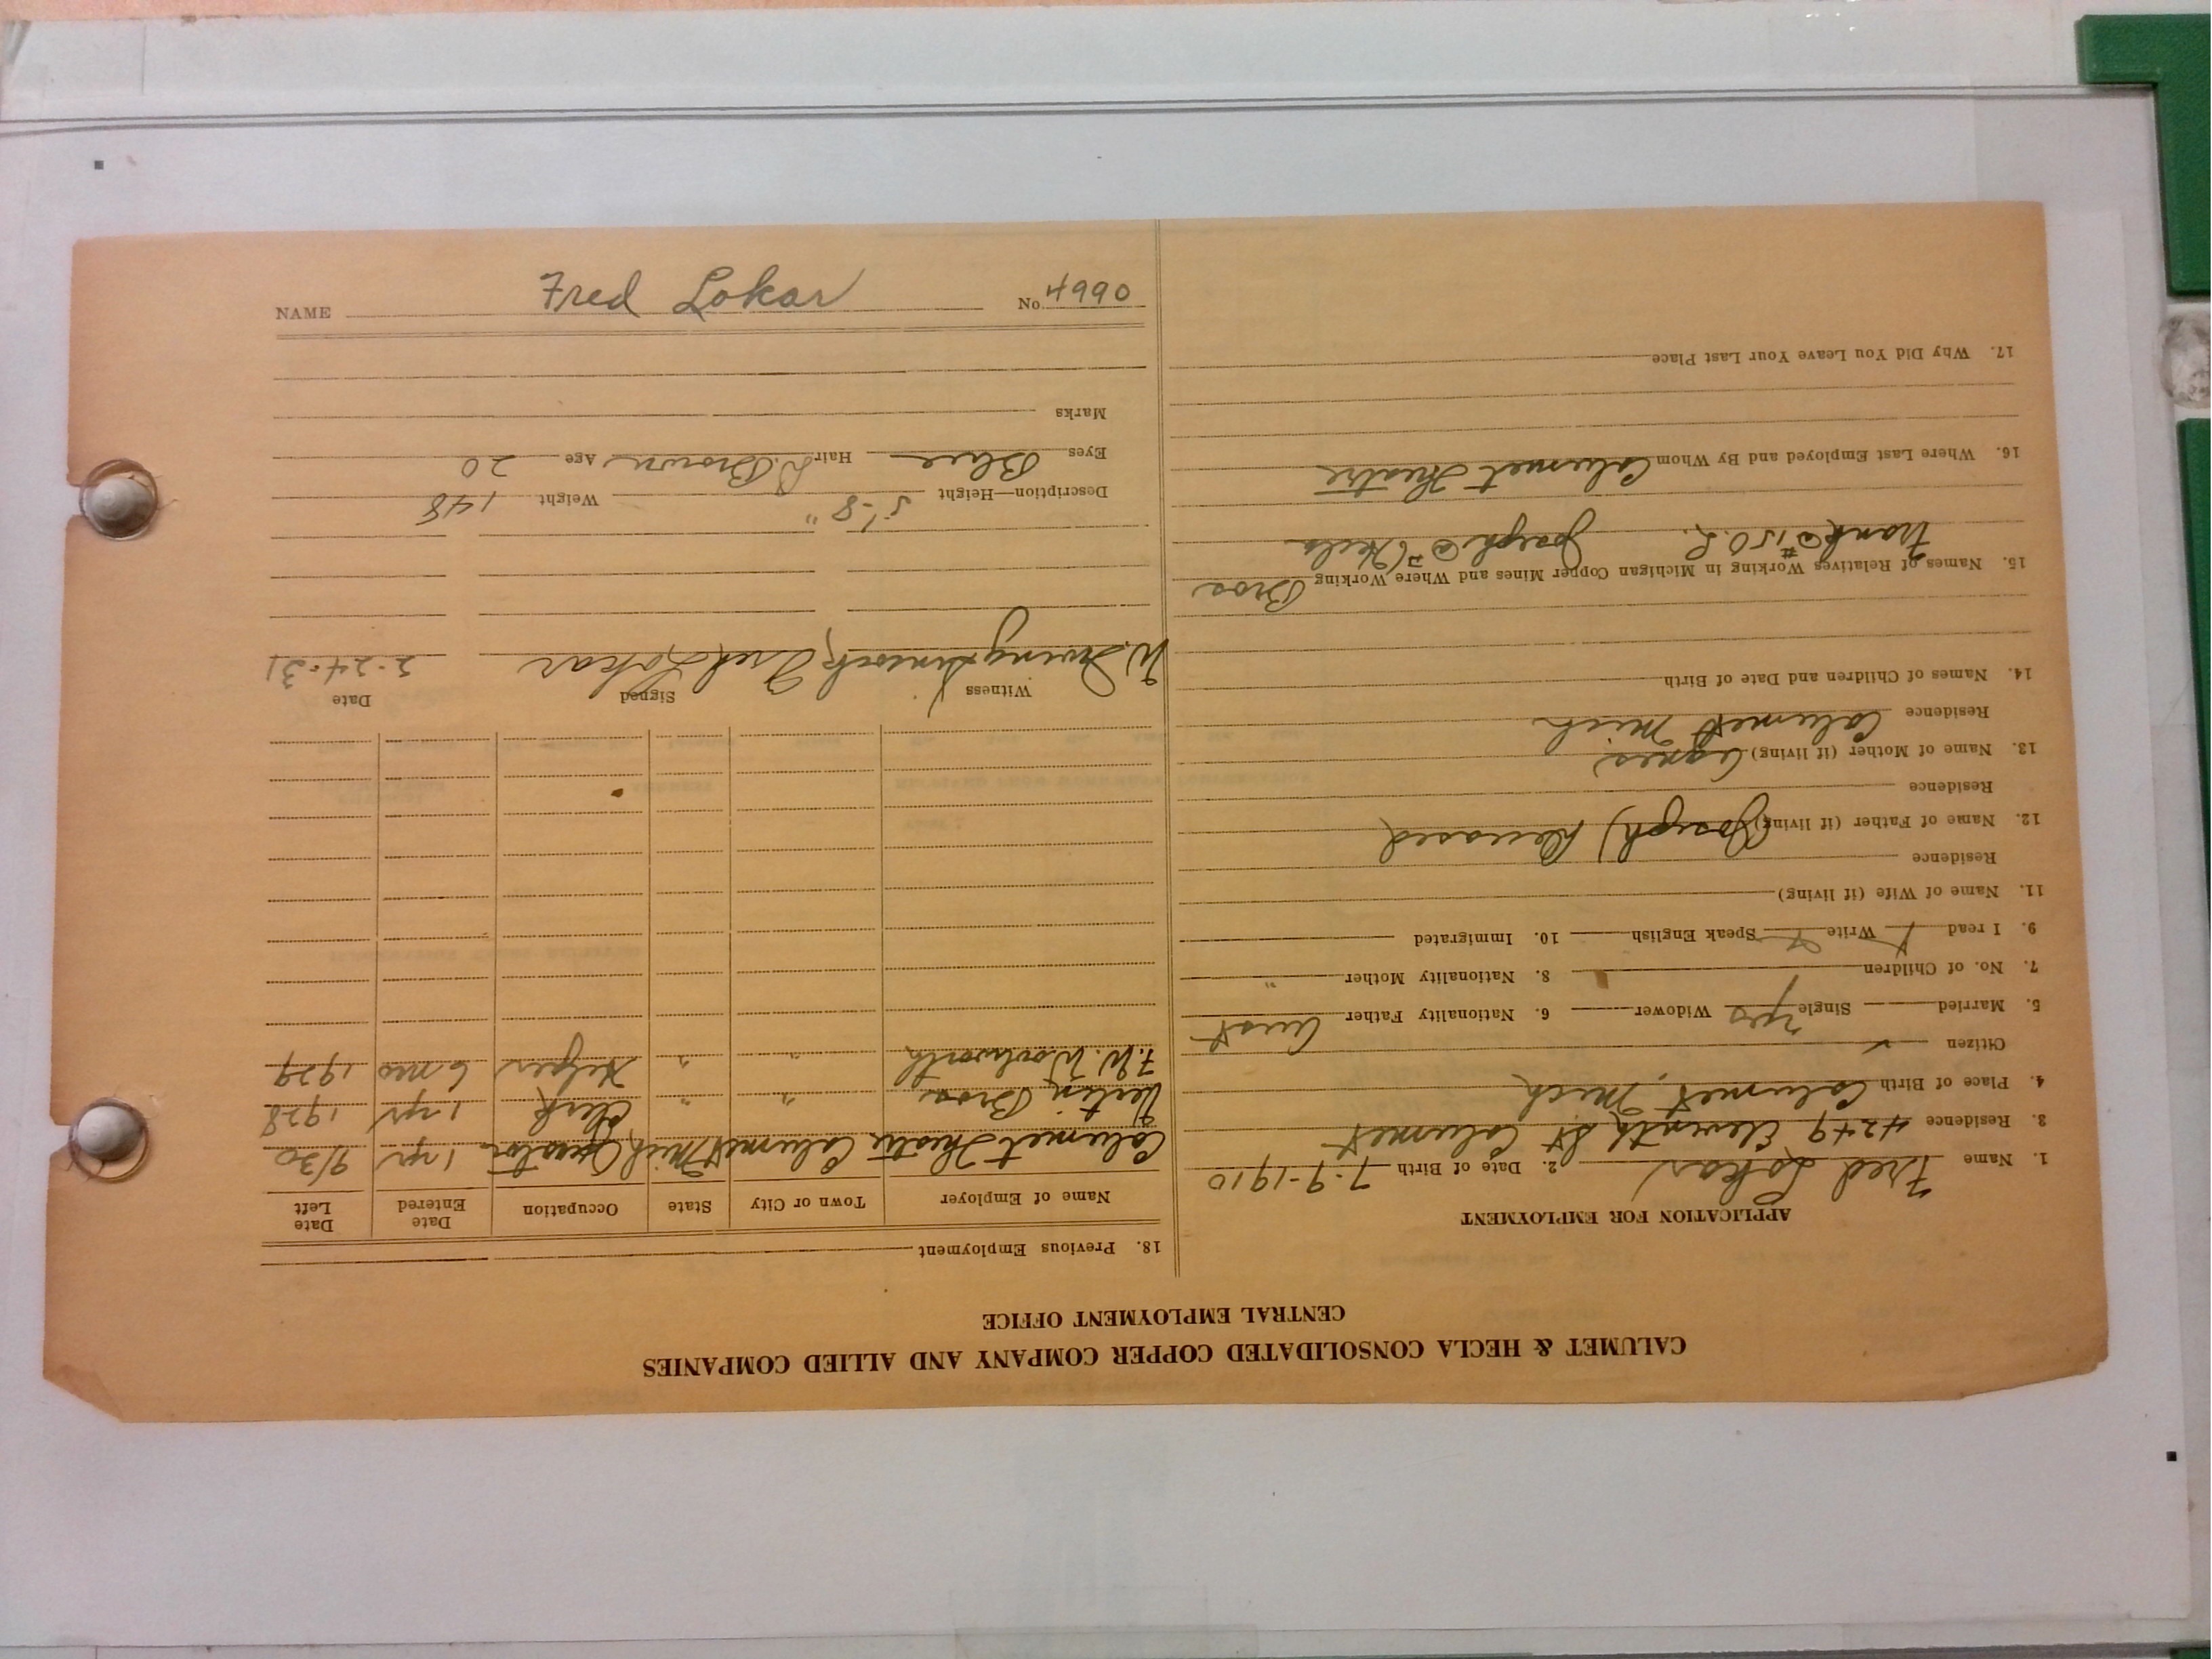 CALUMET & HECLA CONSOLIDATED COPPER COMPANY AND ALLIED COMPANIES
CENTRAL EMPLOYMENT OFFICE
APPLICATION FOR EMPLOYMENT
1. Name Fred Lokar 2. Date of Birth 7-9-1910
3. Residence 4249 Eleventh St Calumet
4. Place of Birth Calumet, Mich
Citizen ✓
5. Married Single yes Widower 6. Nationality Father Aust
7. No. of Children 8. Nationality Mother "
9. I read Write Speak English 10. Immigrated
11. Name of Wife (if living)
Residence
12. Name of Father (if living) (Joseph) Deceased
Residence
13. Name of Mother (if living) Agnes
Residence Calumet Mich
14. Names of Children and Date of Birth
15. Names of Relatives Working in Michigan Copper Mines and Where Working Bros
Frank @ #15 O.L. Joseph @ #7 Hecla
16. Where Last Employed and By Whom Calumet Theatre
17. Why Did You Leave Your Last Place
18. Previous Employment
Name of Employer Town or City State Occupation Date Entered Date Left
Calumet Theatre Calumet Mich Operator 1 yr 9/30
Vertin Bros " " Clerk 1 yr 1928
F.W. Woolworth " " Helper 6 mos 1929
Witness Signed Date
W. Irving Fred Lokar 2-24-31
Description—Height 5'-8" Weight 148
Eyes Blue Hair D. Brown Age 20
Marks
NAME Fred Lokar No 4990